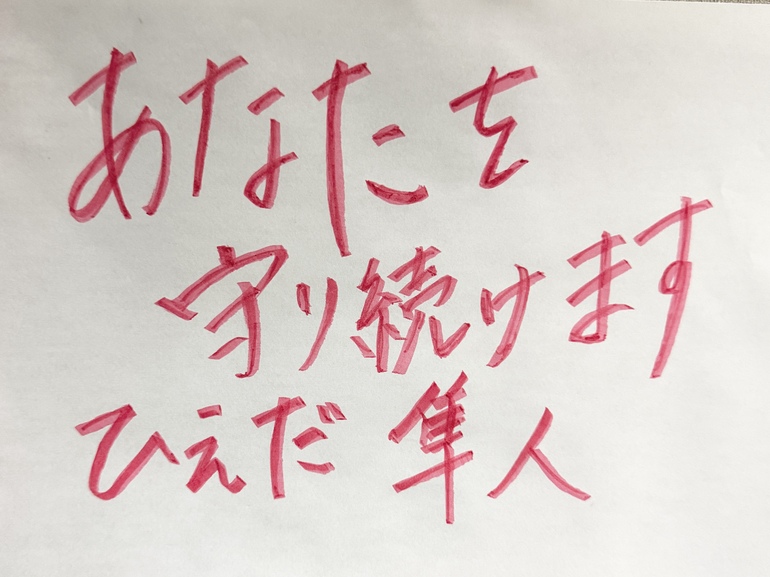 あなたを
守り続けます
ひえだ 隼人